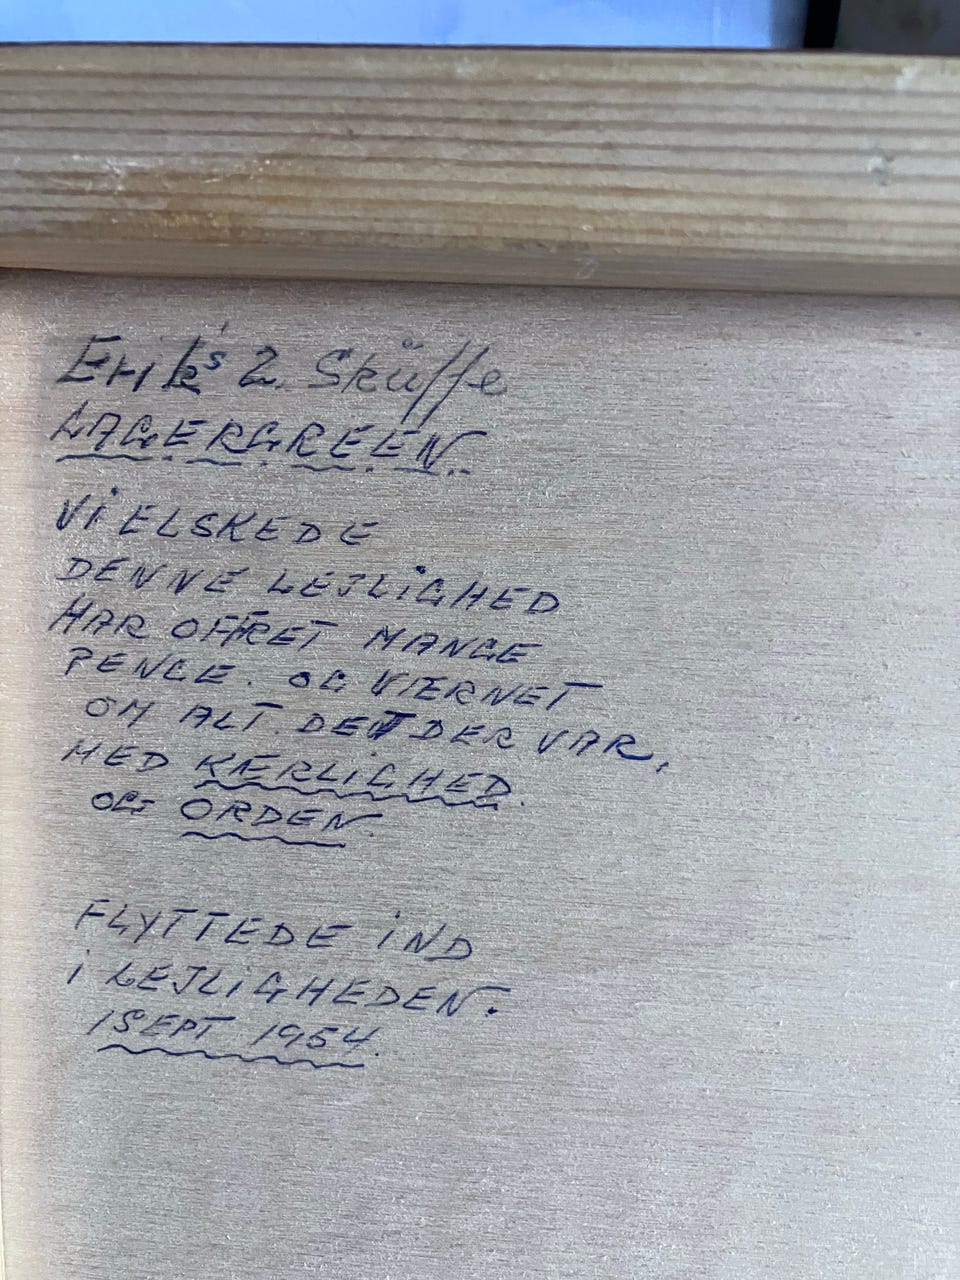 Erik's 2. Skuffe
LAGERGREEN.
Vi ELSKEDE
DENNE LEJLiGHED
HAR OFFRET MANGE
PENGE. OG VÆRNET
OM ALT. DET DER VAR,
MED KÆRLiGHED.
OG ORDEN.
FLYTTEDE iND
i LEJLiGHEDEN.
1 SEPT 1954.